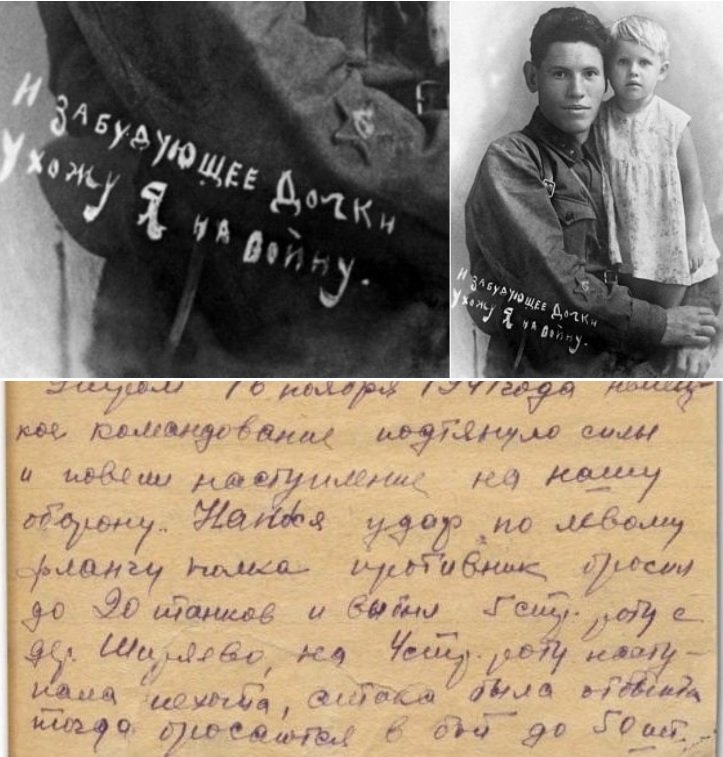 И ЗАБУДУЮЩЕЕ ДОЧКИ
УХОЖУ Я НА ВОЙНУ.
И ЗАБУДУЮЩЕЕ ДОЧКИ
УХОЖУ Я НА ВОЙНУ.
Утром 16 ноября 1941 года немец-
кое командование подтянуло силы
и повели наступление на нашу
оборону. Нанося удар по левому
флангу полка противник бросил
до 20 танков и выбил 5 стр. роту с
дер. Ширяево, на 4 стр. роту насту-
пала пехота, атака была отбита
тогда бросаются в бой до 50 шт.